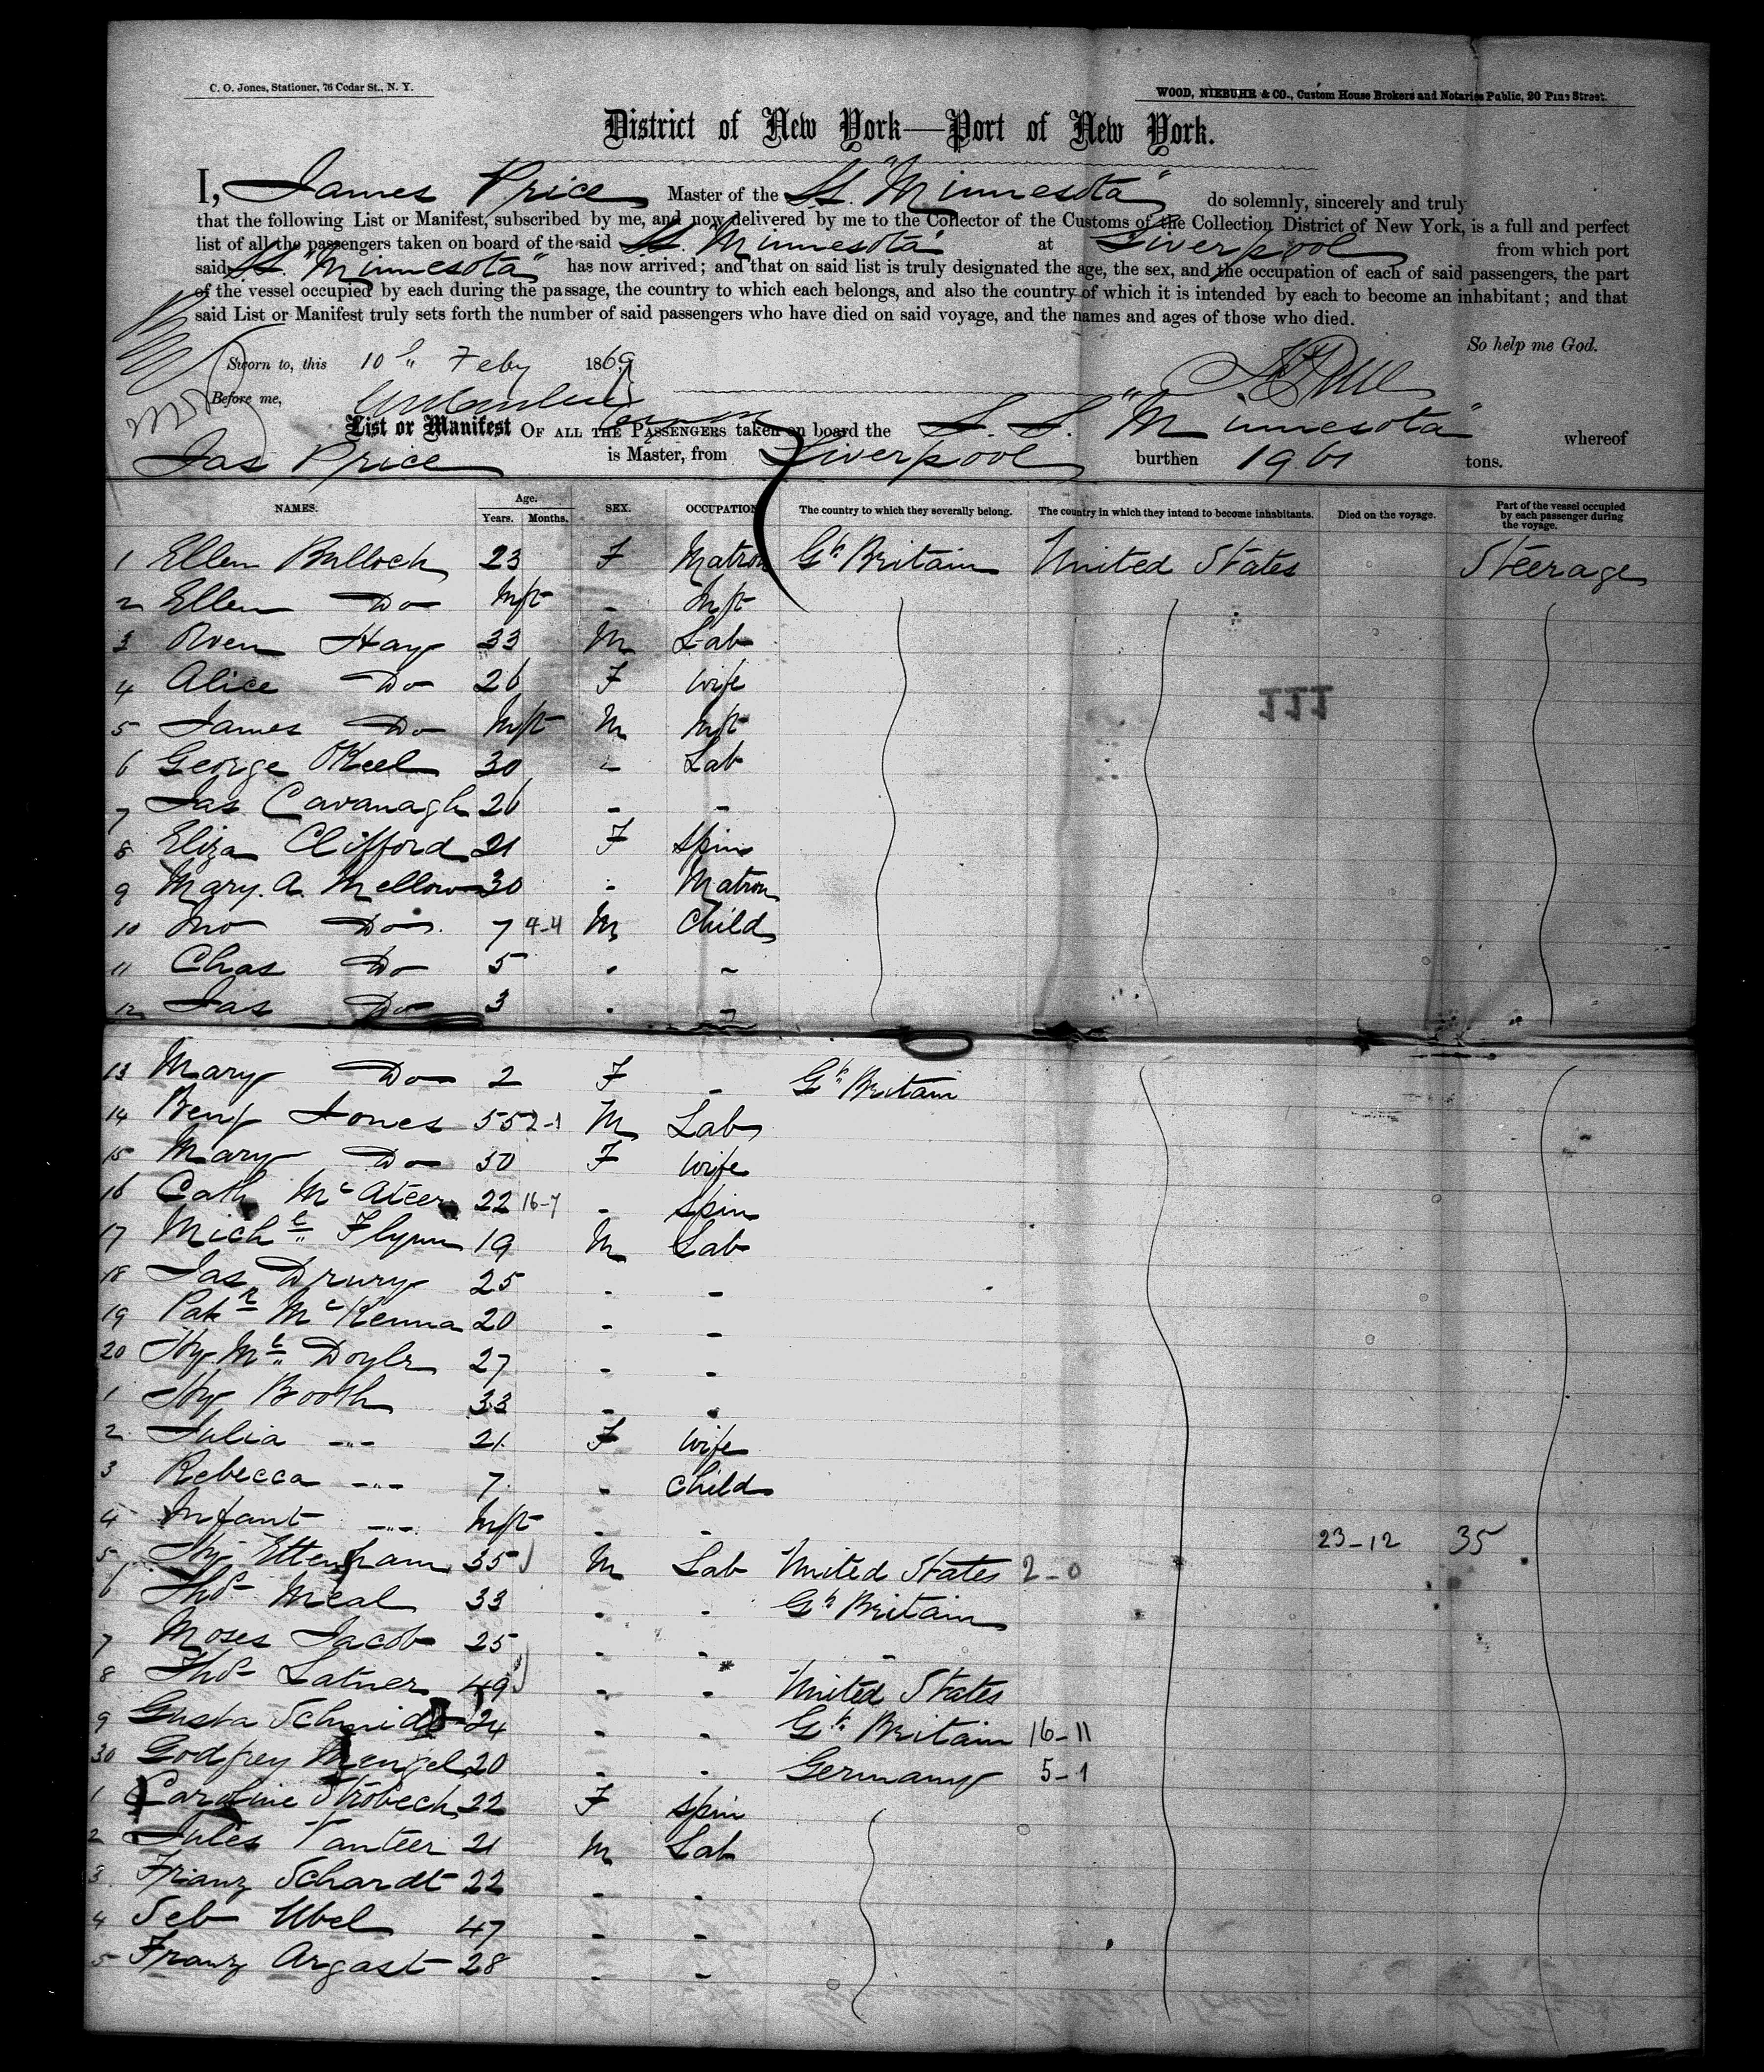 C. O. Jones, Stationer, 76 Cedar St., N. Y.
WOOD, NIEBUHR & CO., Custom House Brokers and Notaries Public, 20 Pine Street.
District of New York—Port of New York.
I, James Price Master of the SS. "Minnesota" do solemnly, sincerely and truly
that the following List or Manifest, subscribed by me, and now delivered by me to the Collector of the Customs of the Collection District of New York, is a full and perfect
list of all the passengers taken on board of the said SS. "Minnesota" at Liverpool from which port
said SS. "Minnesota" has now arrived; and that on said list is truly designated the age, the sex, and the occupation of each of said passengers, the part
of the vessel occupied by each during the passage, the country to which each belongs, and also the country of which it is intended by each to become an inhabitant; and that
said List or Manifest truly sets forth the number of said passengers who have died on said voyage, and the names and ages of those who died.
So help me God.
Sworn to, this 10th Feby 1869
Before me,
List or Manifest OF ALL THE PASSENGERS taken on board the S. S. "Minnesota" whereof
Jas Price is Master, from Liverpool burthen tons.
NAMES. Age. Years. Months. SEX. OCCUPATION The country to which they severally belong. The country in which they intend to become inhabitants. Died on the voyage. Part of the vessel occupied by each passenger during the voyage.
1 Ellen Bulloch 23 F Matron Gt. Britain United States Steerage
2 Ellen Do Inft - Inft
3 Owen Hay 33 M Lab
4 Alice Do 26 F Wife
5 James Do Inft M Inft
111
6 George O'Keel 30 - Lab
7 Jas Cavanagh 26 - -
8 Eliza Clifford 21 F Spin
9 Mary. A. Mellow 30 - Matron
10 Jno Do 7 4-4 M Child
11 Chas Do 5 - -
12 Jas Do 3 - -
13 Mary Do 2 F - Gt. Britain
14 Benj Jones 55 2-1 M Lab
15 Mary Do 50 F Wife
16 Cath McAteer 22 16-7 - Spin
17 Michl. Flynn 19 M Lab
18 Jas Drury 25 - -
19 Patk McKenna 20 - -
20 Hy. Mc Doyle 27 - -
1 Hy Booth 33 - -
2 Julia -"- 21 F Wife
3 Rebecca -"- 7 - Child
4 Infant -"- Inft - - 23-12 35
5 Hy Ettenham 35 M Lab United States 2-0
6 Thos Meal 33 - - Gt. Britain
7 Moses Jacob 25 - - -
8 Thos Latner 49 - - United States
9 Gusta Schmidt 24 - - Gt. Britain 16-11
30 Godfrey Mengel 20 - - Germany 5-1
1 Caroline Strobech 22 F Spin
2 Jules Vanteer 21 M Lab
3 Franz Schardt 22 - -
4 Seb Ubel 47 - -
5 Franz Argast 28 - -